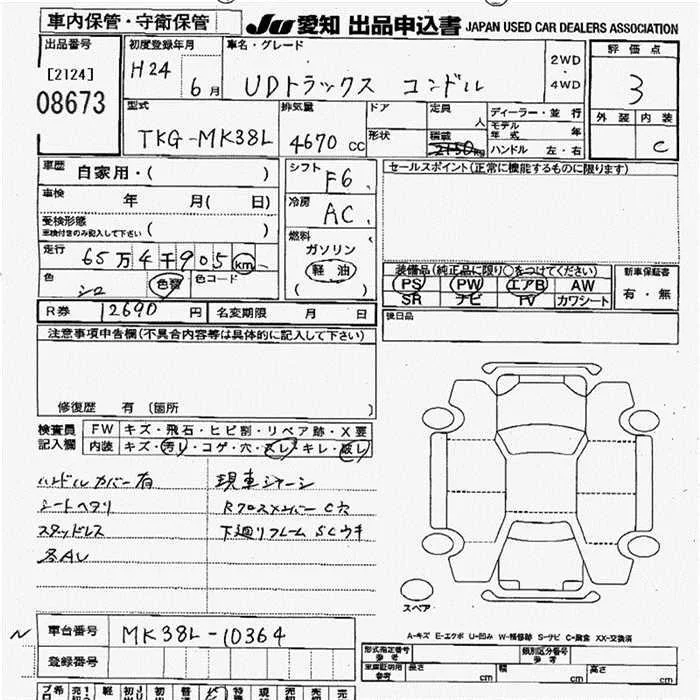 車内保管・守衛保管 JU 愛知 出品申込書 JAPAN USED CAR DEALERS ASSOCIATION
出品番号 初度登録年月 車名・グレード 2WD 評価点
[2124] H24 6月 UDトラックス コンドル ・ 3
08673 4WD
型式 排気量 ドア 定員 人 ディーラー・並行 外装 内装
TKG-MK38L 4670 CC 形状 積載 2150kg モデル年式 年 C
ハンドル 左・右
車歴 自家用・( ) シフト F6 セールスポイント(正常に機能するものに限ります)
車検 年 月( 日) 冷房 AC
受検形態 ( )
車検付きのみ記入して下さい
燃料
走行 65万4千905 km ガソリン
軽油 装備品(純正品に限り○をつけてください) 新車保証書
色 シロ 色替 色コード ( ) PS PW エアB AW 有・無
SR ナビ TV カワシート
R券 12690 円 名変期限 月 日 後日品
注意事項申告欄(不具合内容等は具体的に記入して下さい)
修復歴 有 (箇所 )
検査員 FW キズ・飛石・ヒビ割・リペア跡・X要
記入欄 内装 キズ・汚レ・コゲ・穴・スレ・キレ・破レ
ハンドルカバー有 現車ジャーシ
シートヘタリ Rクロスメンバー C穴
スタッドレス 下廻りフレーム SCウキ
スペア
A-キズ E-エクボ U-凹み W-補修跡 S-サビ C-腐食 XX-交換済
N 車台番号 MK38L-10364
登録番号
型式指定番号 参考 類別区分番号 参考
車庫証明用 参考 長さ cm 幅 cm 高さ cm